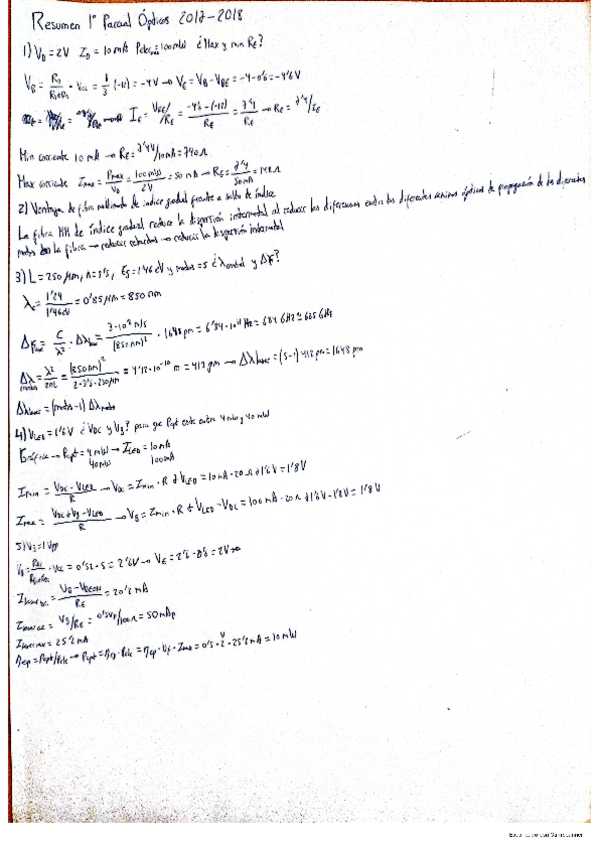 Resumen 1º Parcial Ópticos 2017-2018
1) V_D = 2V I_D = 10mA Pelec_max = 100mW ¿Max y min R_E?
V_B = R_2/(R_1+R_2) · V_CC = 1/3 (-12) = -4V → V_E = V_B - V_BE = -4-0'6 = -4'6V
I_E = V_RE/R_E = (-4'6-(-12))/R_E = 7'4/R_E → R_E = 7'4/I_E
Min corriente 10 mA → R_E = 7'4V/10mA = 740Ω
Max corriente I_max = P_max/V_D = 100mW/2V = 50mA → R_E = 7'4/50mA = 148Ω
2) Ventaja de fibra multimodo de índice gradual frente a salto de índice
La fibra MM de índice gradual reduce la dispersión intermodal al reducir las diferencias entre los diferentes caminos ópticos de propagación de los diferentes
modos en la fibra → reducir retardos → reducir la dispersión intermodal
3) L = 250 μm, n = 3'5, E_g = 1'46 eV y modos = 5 ¿λ_central y Δf?
λ = 1'24/1'46eV = 0'85 μm = 850 nm
Δf = C/λ² · Δλ = 3·10⁸ m/s/(850 nm)² · 1648 pm = 6'84·10¹¹ Hz = 684 GHz ≈ 685 GHz
Δλ_modos = λ²/2nL = (850nm)²/(2·3'5·250μm) = 4'12·10⁻¹⁰ m = 412 pm → Δλ = (5-1) 412 pm = 1648 pm
Δλ = (modos-1) Δλ_modos
4) V_LED = 1'6V ¿V_DC y V_g? para que Popt este entre 4mW y 40mW
Gráfica → Popt = 4mW → I_LED = 10mA
40mW 100mA
I_min = (V_DC - V_LED)/R → V_DC = I_min · R + V_LED = 10mA · 20Ω + 1'6V = 1'8V
I_max = (V_DC + V_g - V_LED)/R → V_g = I_min · R + V_LED - V_DC = 100mA · 20Ω + 1'6V - 1'8V = 1'8V
5) V_g = 1 Vpp
· V_CC = 0'52 · 5 = 2'6V → V_E = 2'6 - 0'6 = 2V
= (V_B - V_BEON)/R_E = 20'2 mA
= V_g/R_E = 0'5Vp/100Ω = 50mAp
= 25'2 mA
η_ep = Popt/Pelec → Popt = η_ep · Pelec = η_ep · V_f · I_max = 0'2 · 2V · 25'2mA = 10mW